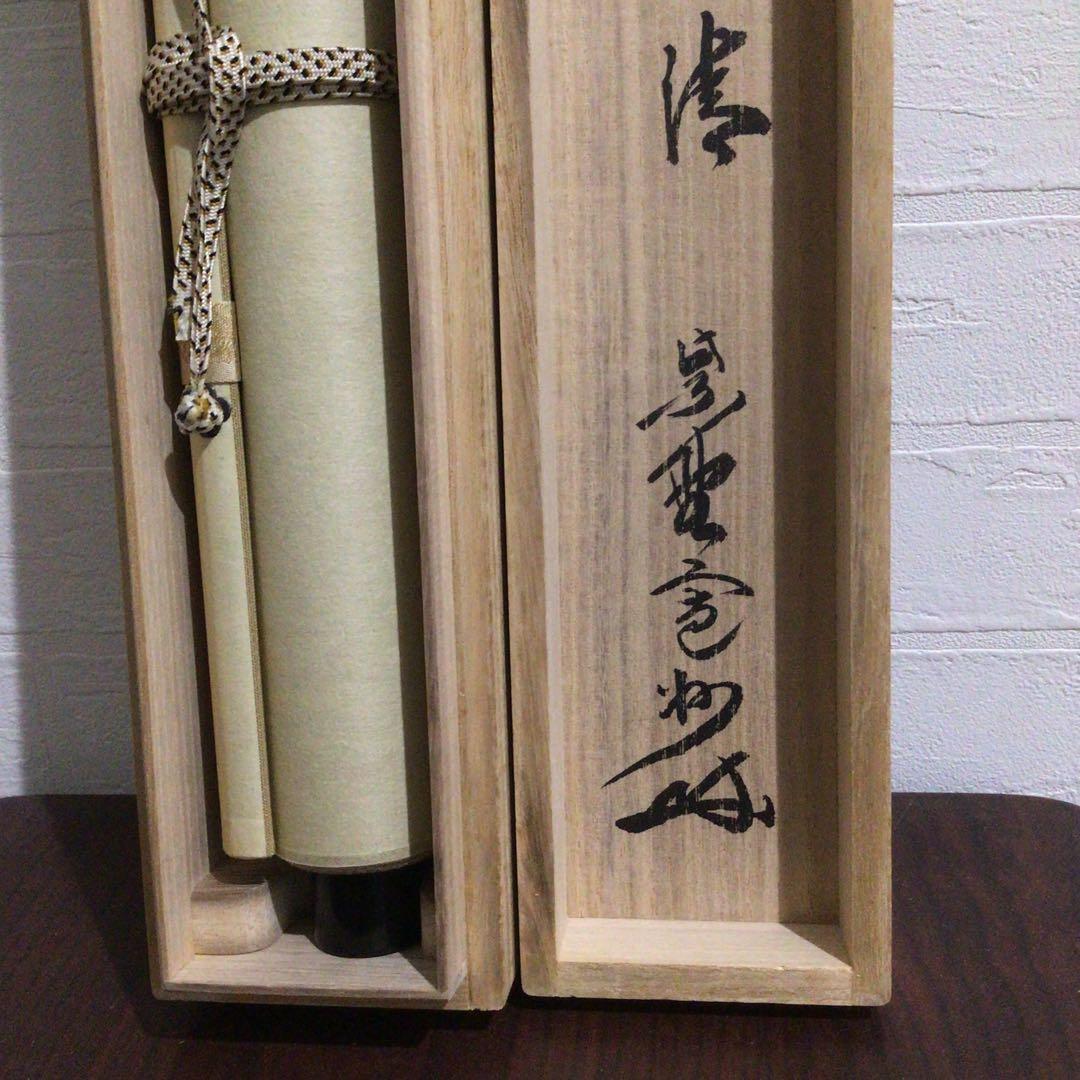 清
紫野寛州